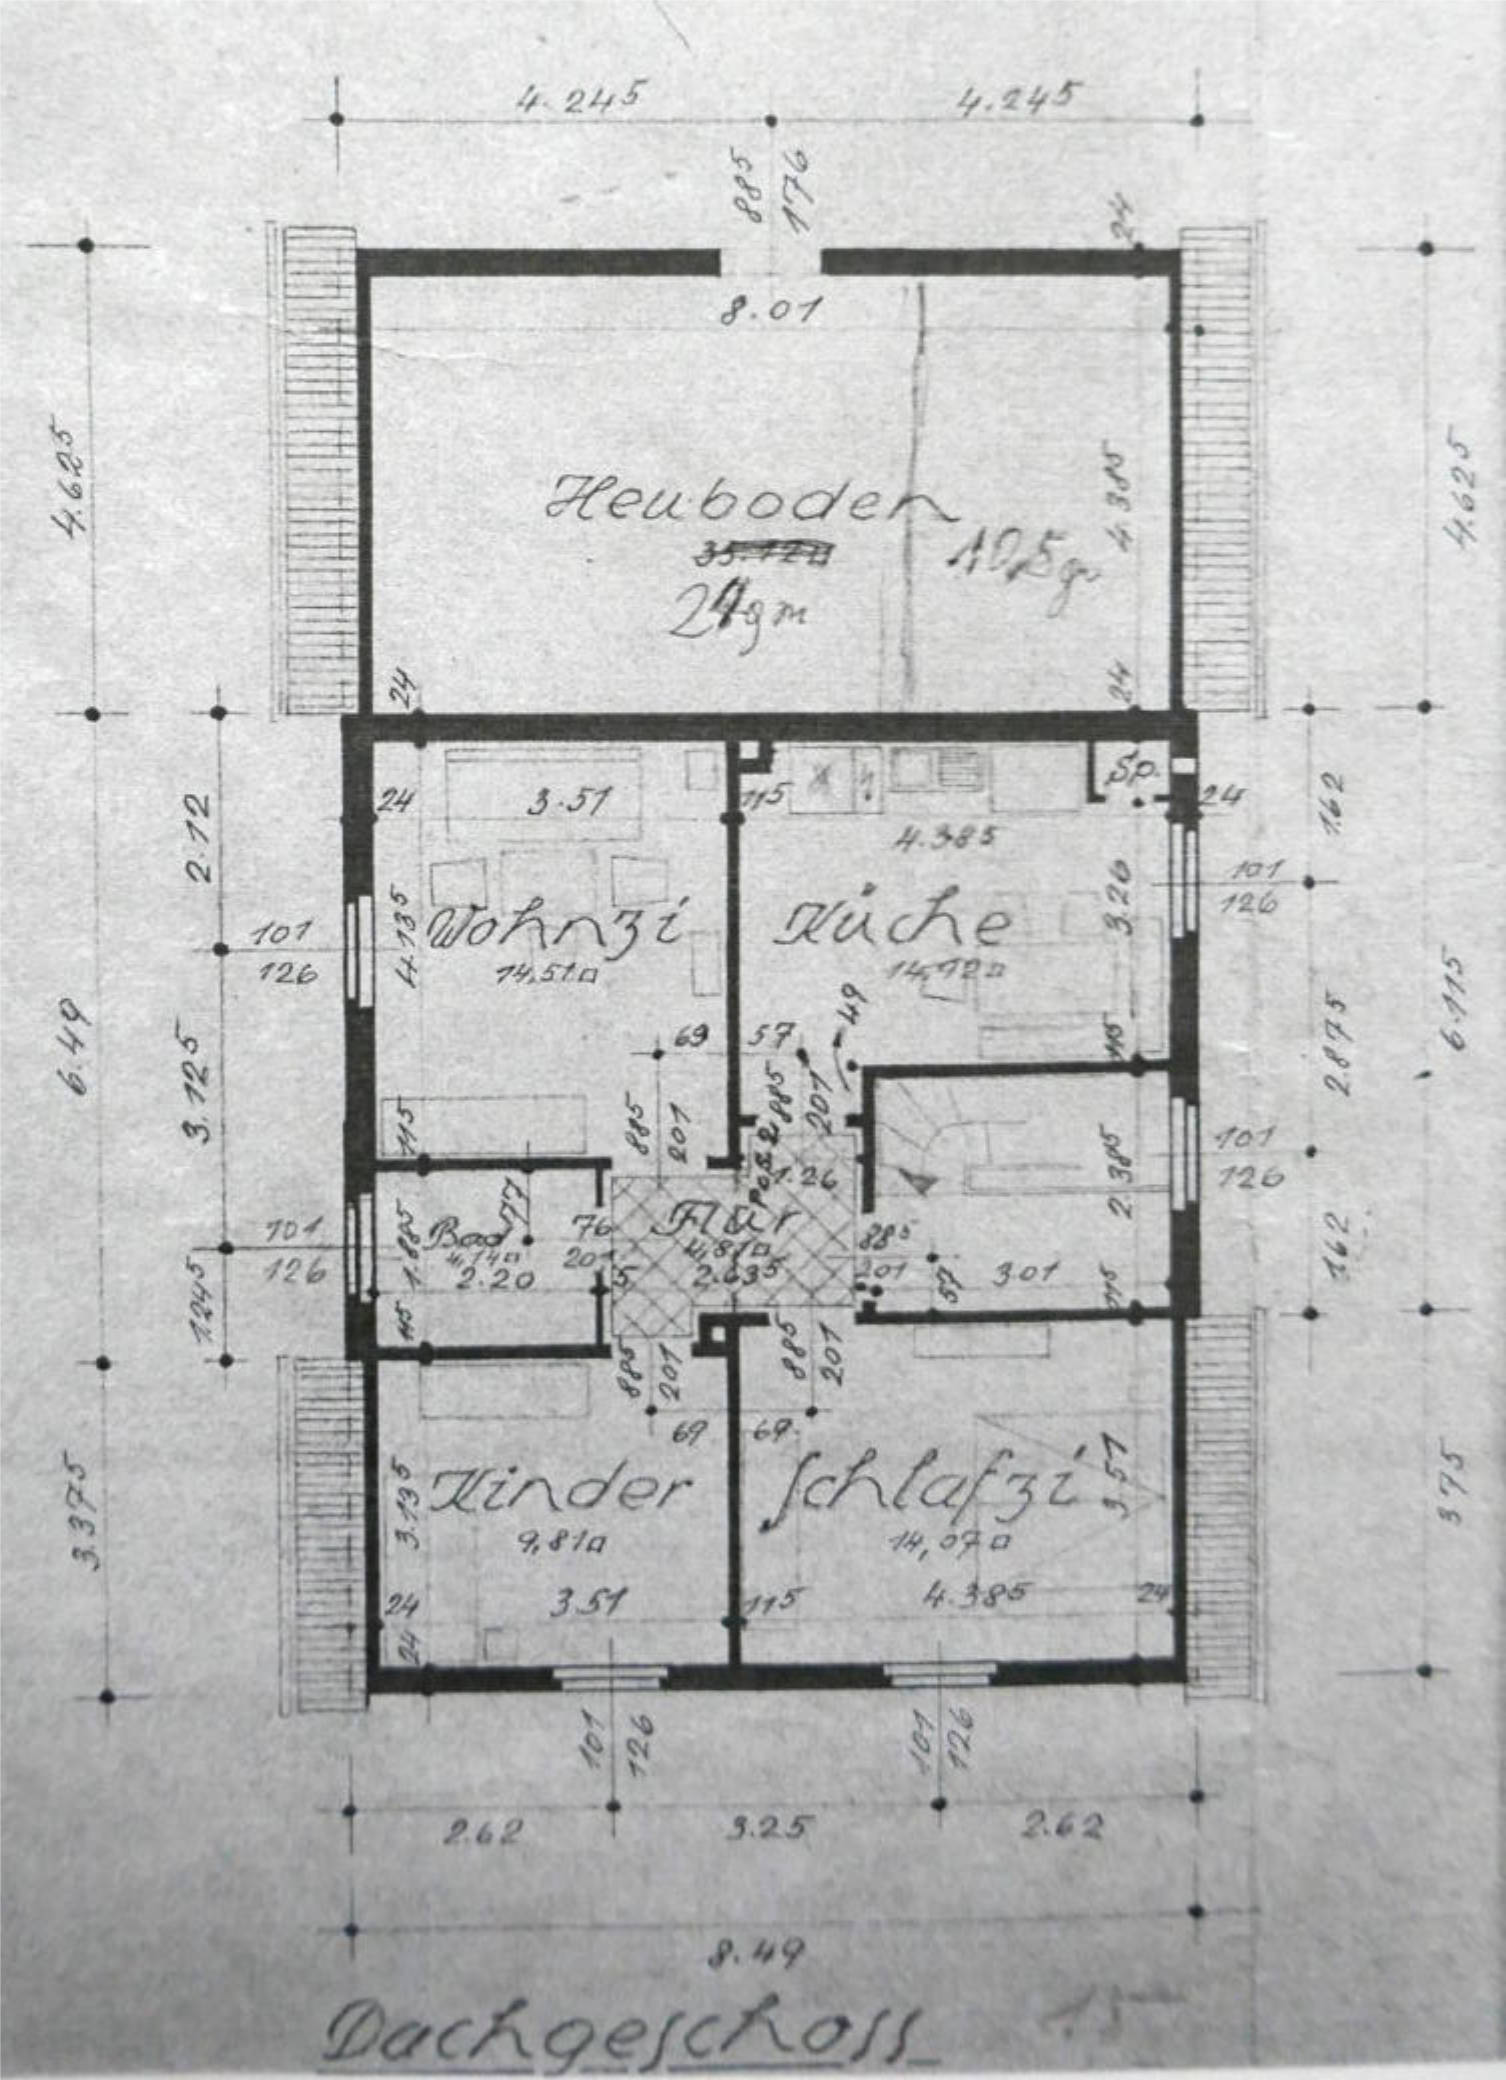 4.24⁵ 4.24⁵
88⁵
176
24
8.01
4.62⁵
4.38⁵
4.62⁵
Heuboden
35.12□
10,5
21qm
24
24
2.12
24
3.51
11⁵
Sp.
24
1.62
4.38⁵
101
126
4.13⁵
Wohnzi
14,51□
Küche
3.26
101
126
6.49
3.12⁵
69
57
49
11⁵
2.87⁵
6.11⁵
88⁵
201
88⁵
201
11⁵
Pos 2
1.26
2.38⁵
101
126
101
126
1.88⁵
Bad
77
4,14□
2.20
76
201
5
Flur
4,81□
2.63⁵
88⁵
201
57
3.01
11⁵
1.62
1.24⁵
11⁵
88⁵
201
88⁵
201
69
69
3.37⁵
3.13⁵
Kinder
9,81□
Schlafzi
14,07□
3.51
3.75
24
3.51
11⁵
4.38⁵
24
24
101
126
101
126
2.62 3.25 2.62
8.49
Dachgeschoss